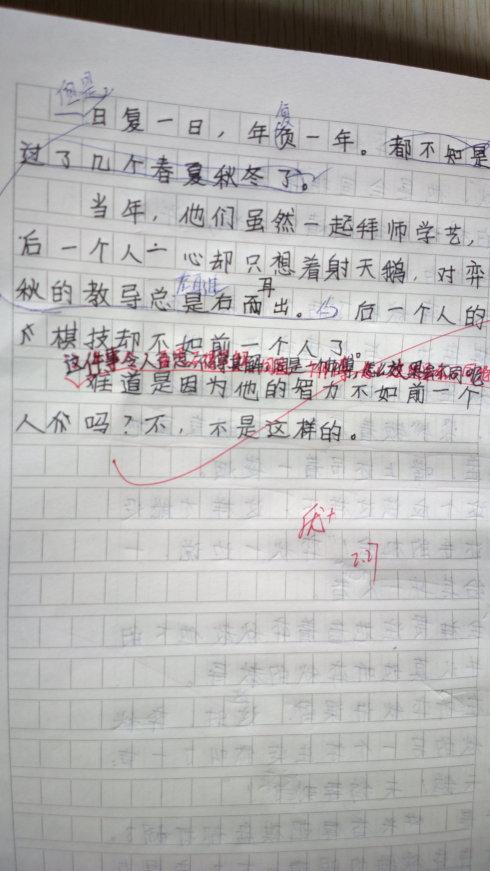 但是，
复
一日复一日，年负一年。都不知是
过了几个春夏秋冬了。
当年，他们虽然一起拜师学艺，
后一个人一心却只想着射天鹅，对弈
左耳进 耳
秋的教导总是右而出。后一个人的
棋技却不如前一个人了。
这件事令人百思不得其解，同是一个师傅，怎么效果会不同呢？
难道是因为他的智力不如前一个
人吗？不，不是这样的。
优+
2.27